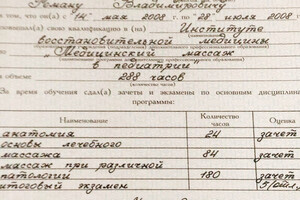 Роману Владимировичу
в том, что он(а) с «14» мая 2008 г. по «28» июля 2008 г.
повышал(а) свою квалификацию в (на) Институте
восстановительной медицины
по „Медицинский массаж
в педиатрии"
в объеме 288 часов
(количество часов)
За время обучения сдал(а) зачеты и экзамены по основным дисциплинам
программы:
Наименование Количество часов Оценка
анатомия 24 зачет
основы лечебного
массажа 84 зачет
массаж при различной
патологии 180 зачет
итоговый экзамен 5/отл